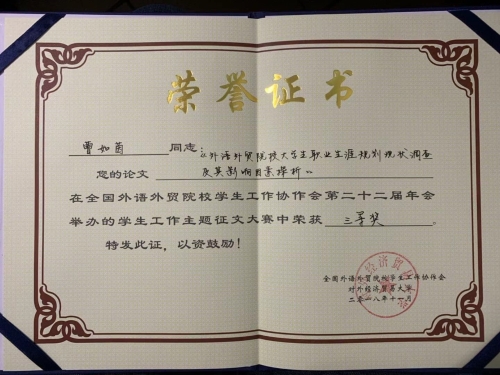 荣誉证书
曾如菌 同志：
您的论文《外语外贸院校大学生职业生涯规划现状调查
及其影响因素探析》
在全国外语外贸院校学生工作协作会第二十二届年会
举办的学生工作主题征文大赛中荣获 三等奖 。
特发此证，以资鼓励！
全国外语外贸院校学生工作协作会
对外经济贸易大学
二〇一八年十一月